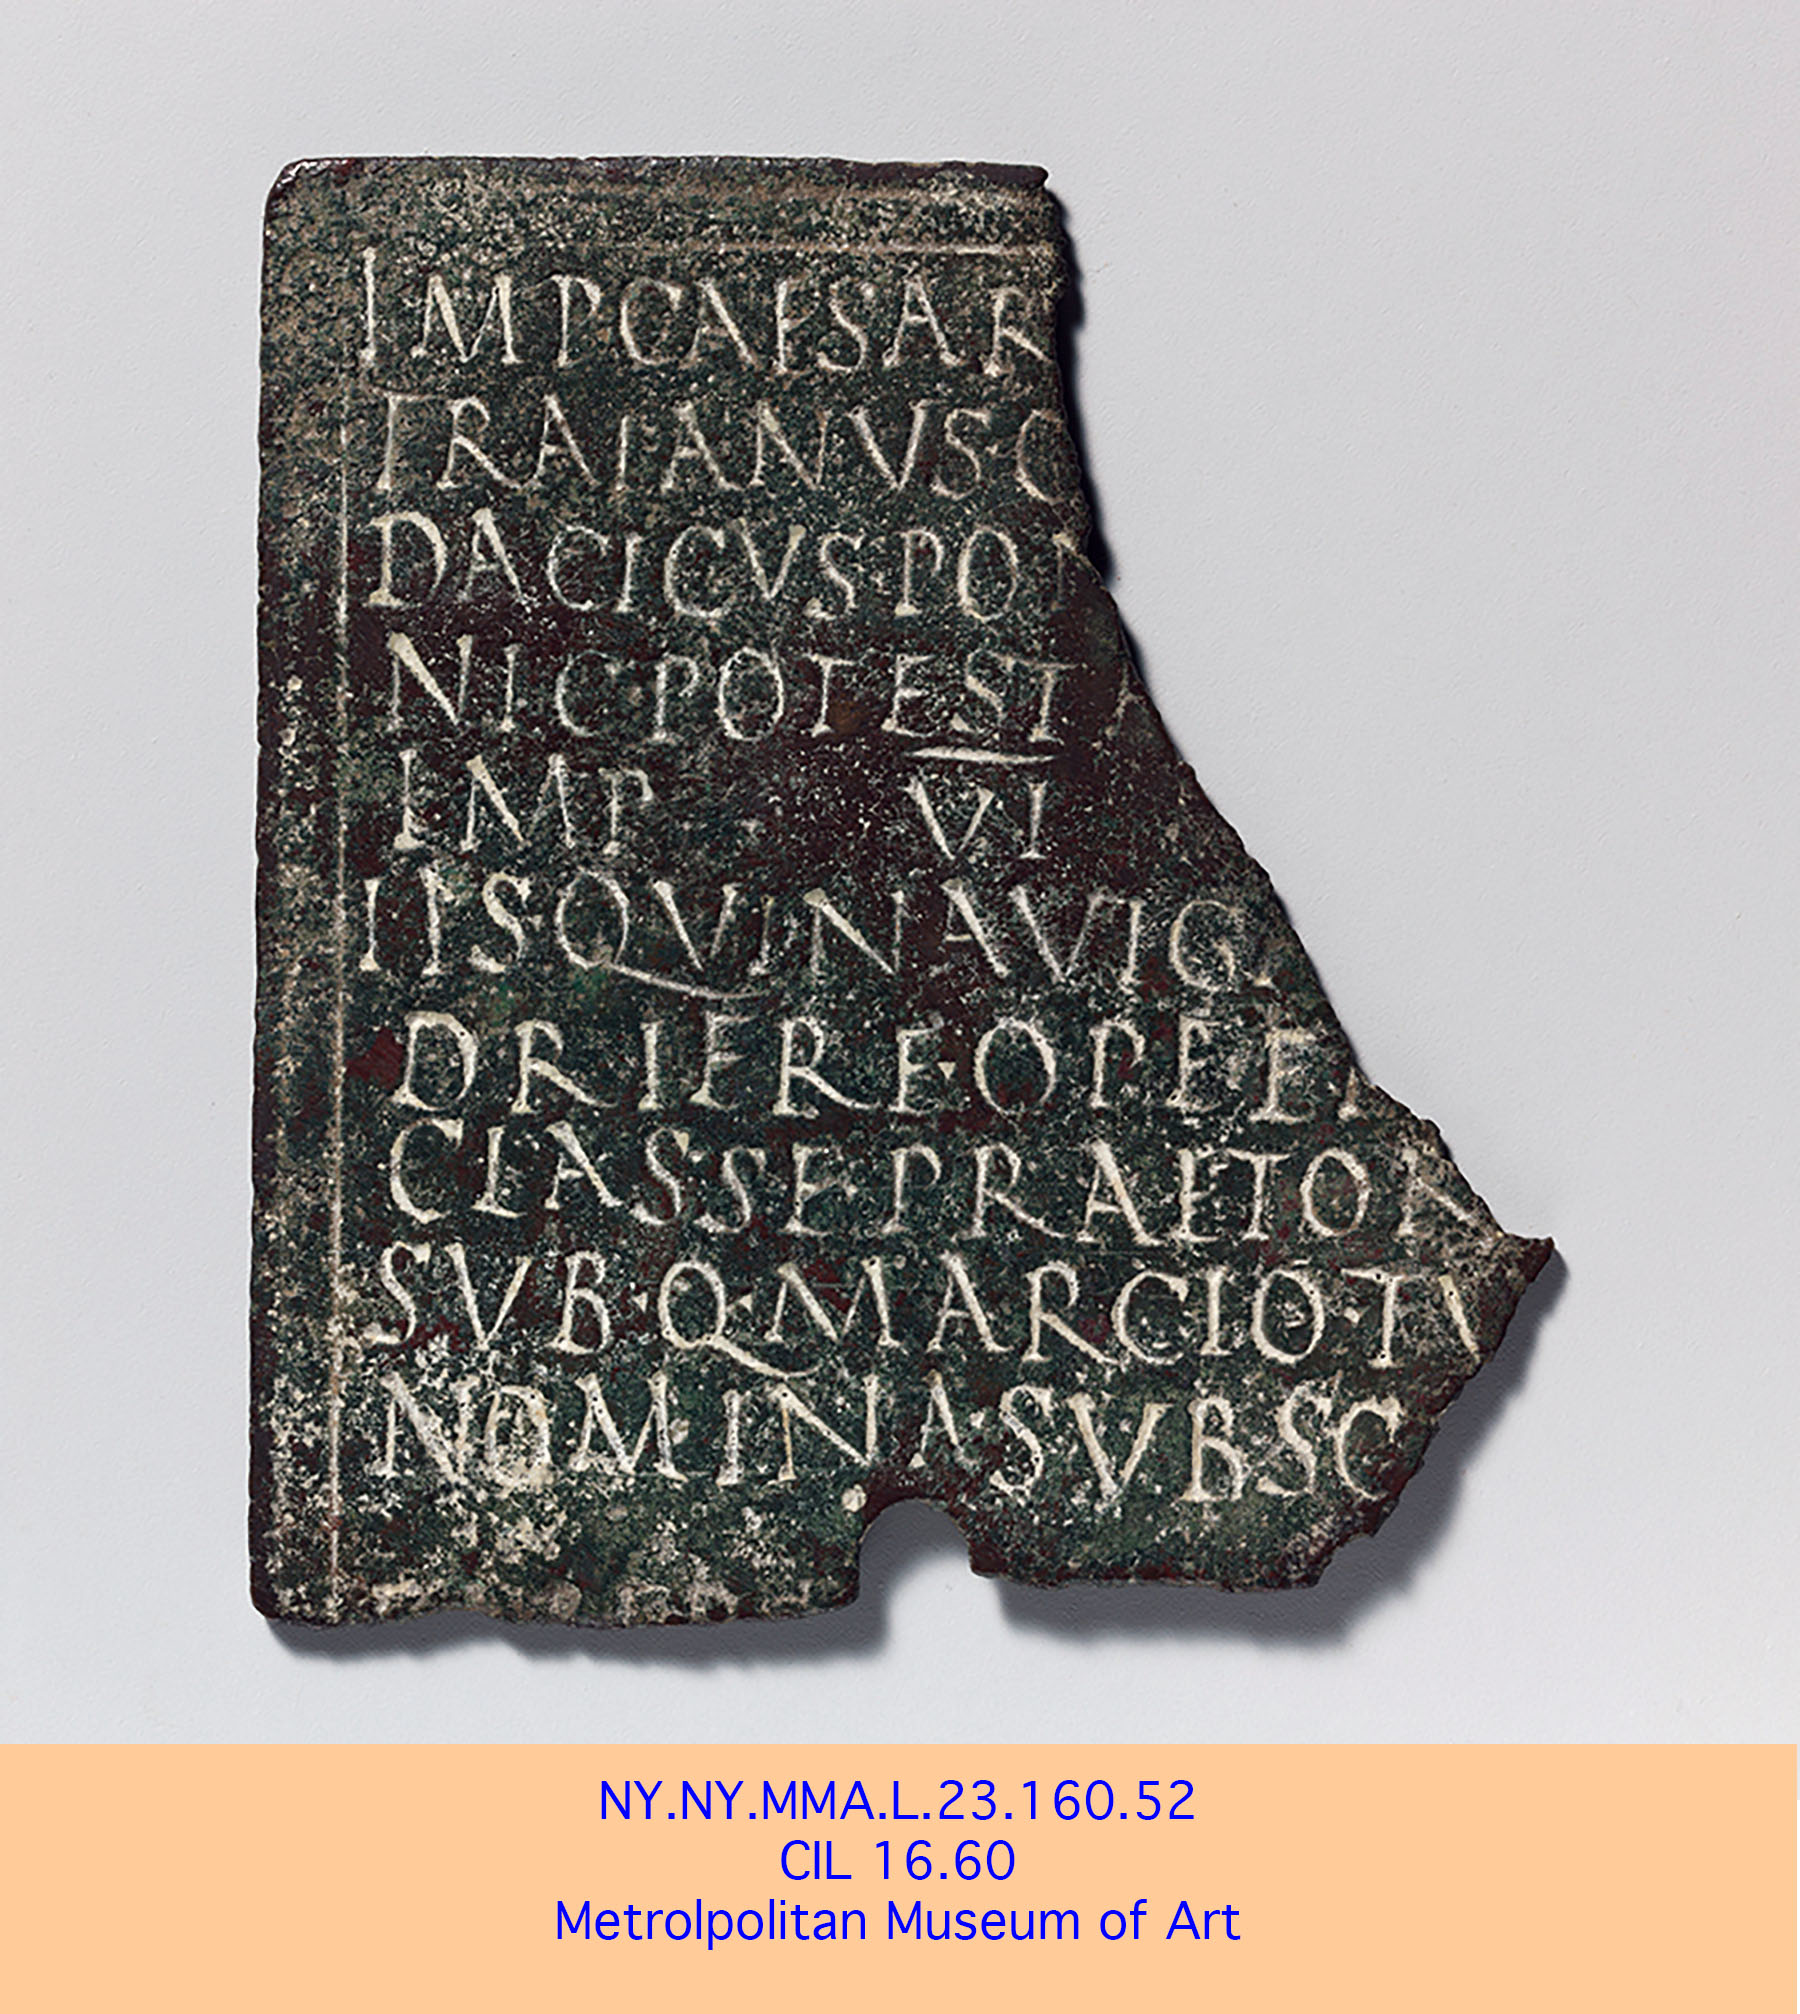 IMPCAESAR
TRAIANVS·G
DACICVS·PON
NICPOTEST
IMP VI
IIS·QVINAVIGA
DRIERE·OPEEN
CLASSEPRAETOR
SVB·Q·MARCIO·TV
NOMINASVBSC
NY.NY.MMA.L.23.160.52
CIL 16.60
Metrolpolitan Museum of Art